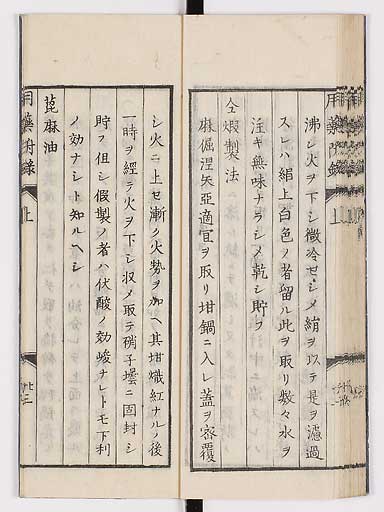 用藥附錄
上
沸シ火ヲ下シ微冷セシメ絹ヲ以テ是ヲ濾過
スレハ絹上白色ノ者留ル此ヲ取リ數々水ヲ
注キ無味ナラシメ乾シ貯フ
仝煆製法
麻倔涅矢亞適宜ヲ取リ坩鍋ニ入レ蓋ヲ密覆
シ火ニ上セ漸ク火勢ヲ加ヘ其坩熾紅ナルノ後
一時ヲ經テ火ヲ下シ収メ取テ硝子壜ニ固封シ
貯フ但シ假製ノ者ハ伏酸ノ効峻ナレトモ下利
ノ効ナシト知ルヘシ
蓖麻油
用藥附錄
上
廿三